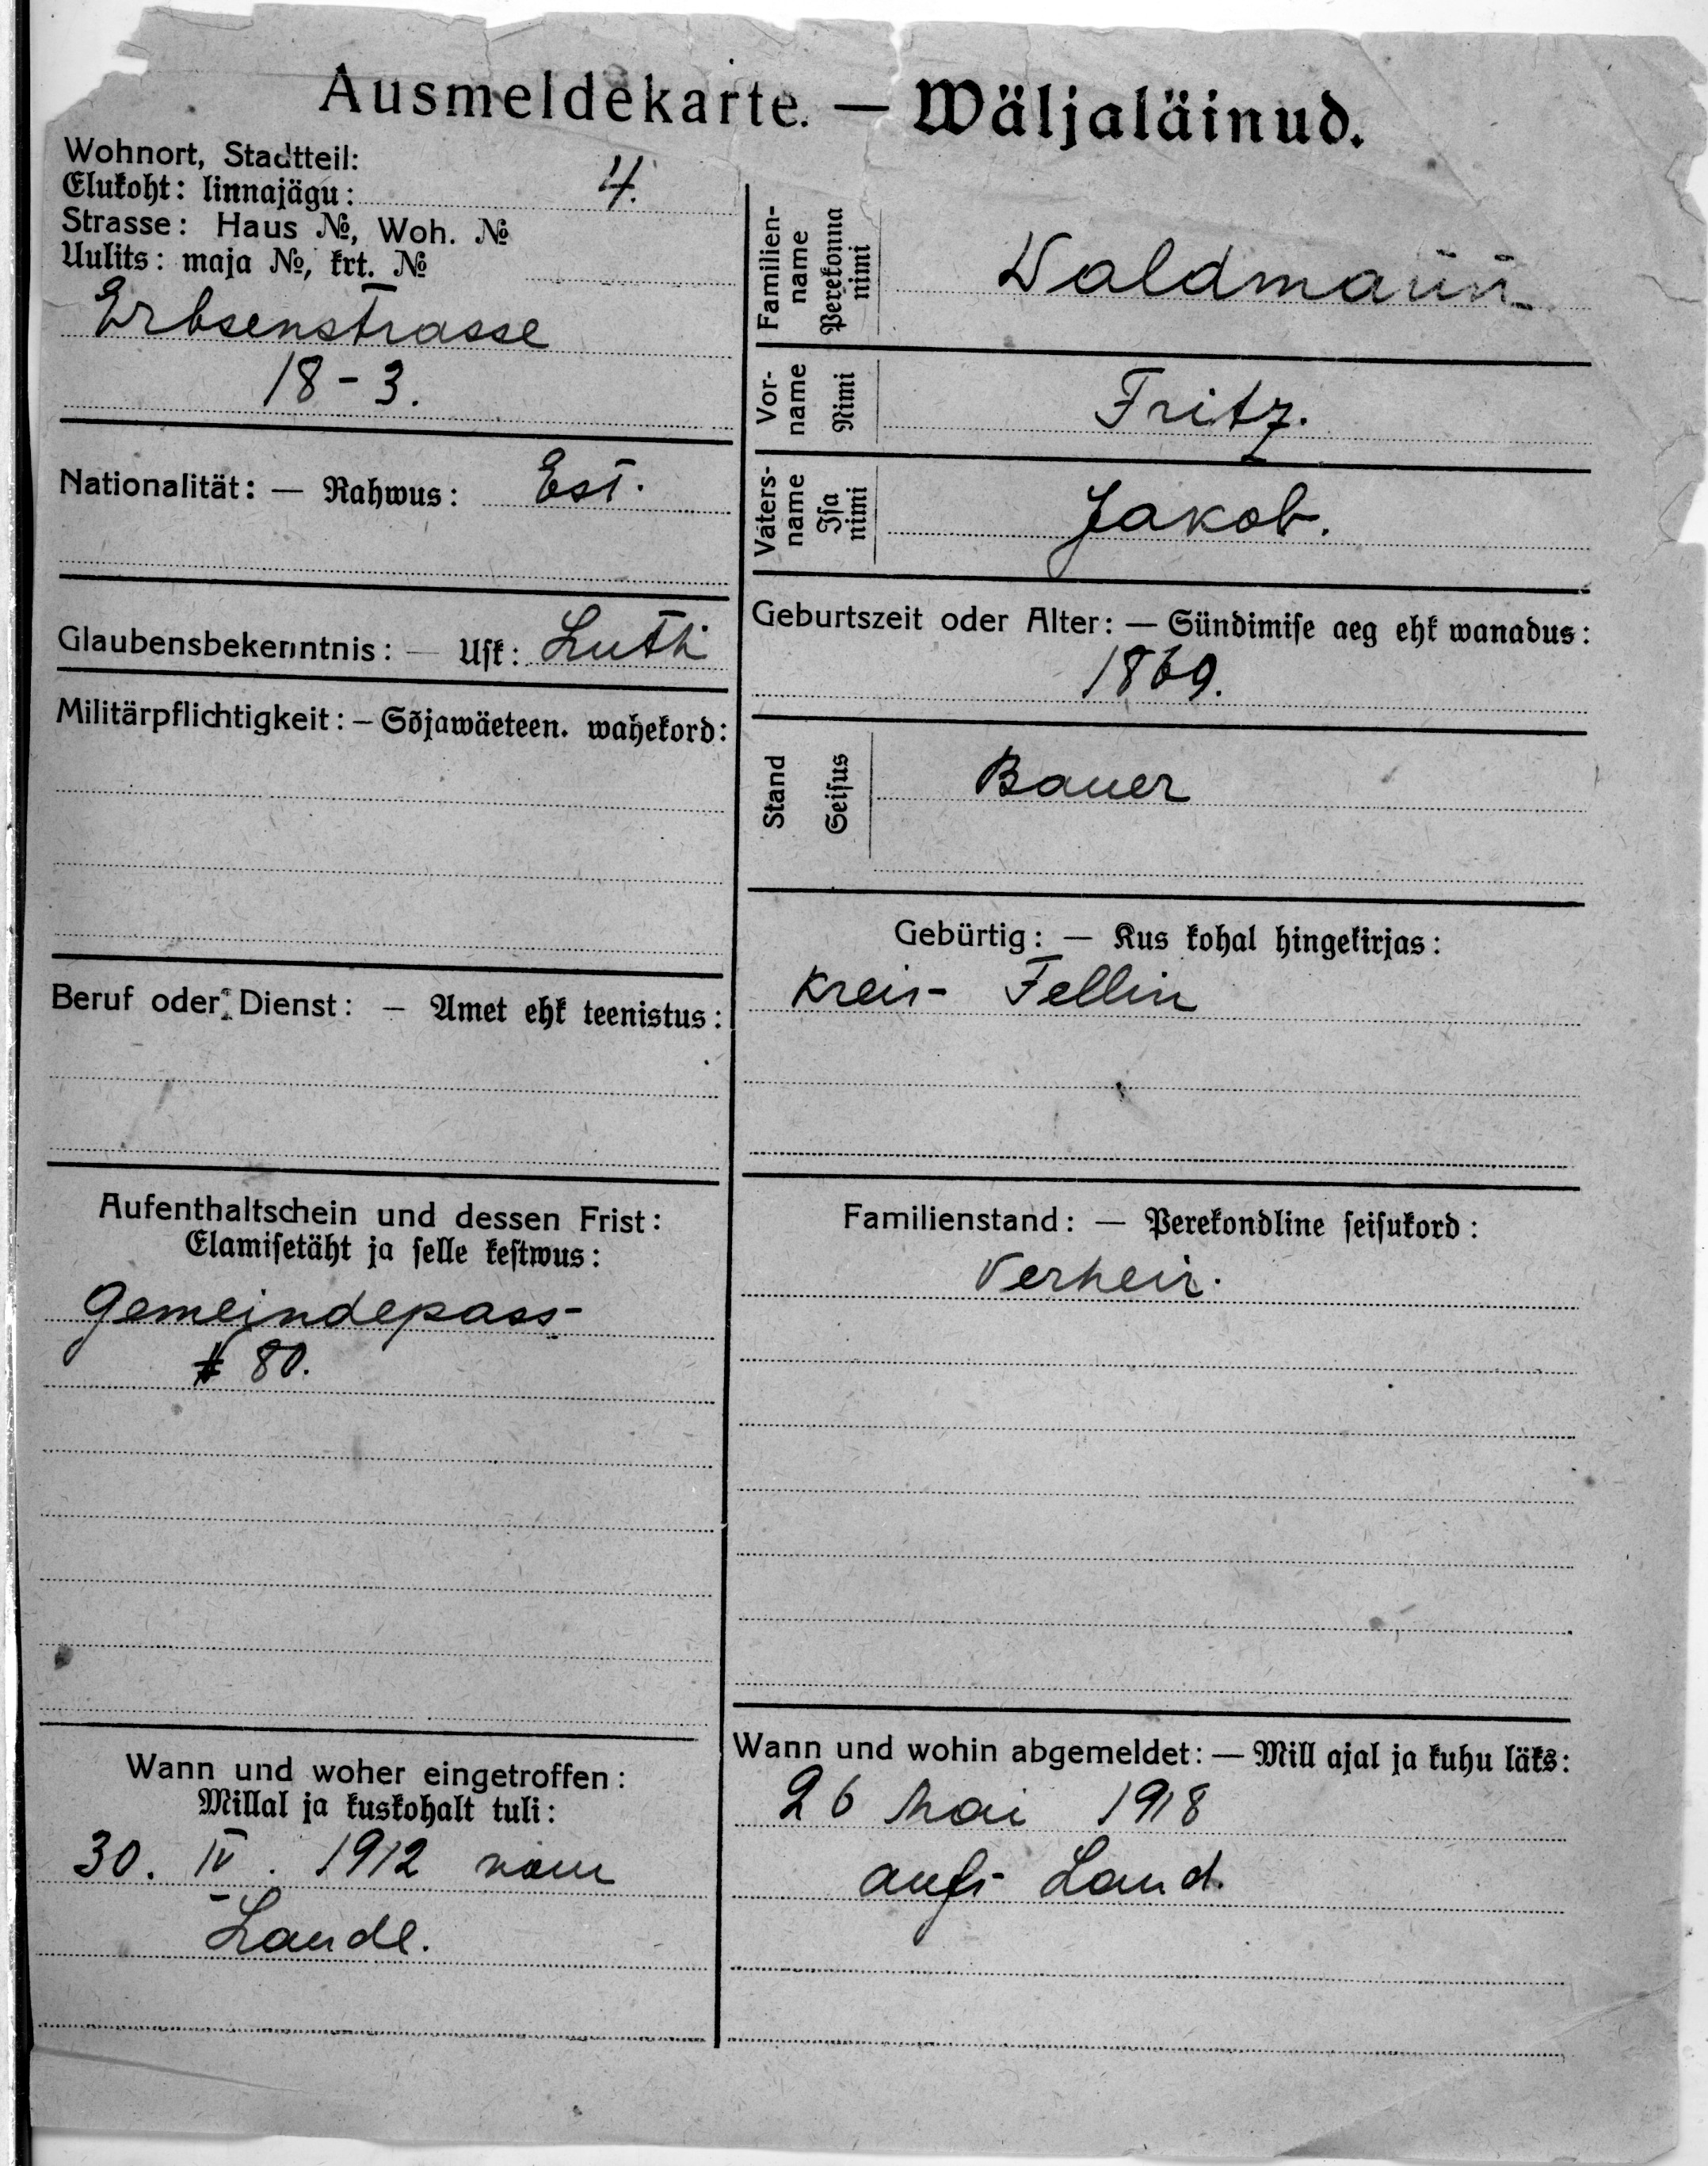 Ausmeldekarte. — Wäljaläinud.
Wohnort, Stadtteil:
Elukoht: linnajägu: 4.
Strasse: Haus №, Woh. №
Uulits: maja №, krt. №
Erbsenstrasse
18-3.
Nationalität: — Rahwus: Est.
Glaubensbekenntnis: — Usk: Luth.
Militärpflichtigkeit: — Sõjawäeteen. wahekord:
Beruf oder Dienst: — Amet ehk teenistus:
Aufenthaltschein und dessen Frist:
Elamisetäht ja selle kestwus:
Gemeindepass-
# 80.
Wann und woher eingetroffen:
Millal ja kuskohalt tuli:
30. IV. 1912 vom
Lande.
Familien-
name
Perekonna
nimi
Waldmann
Vor-
name
Nimi
Fritz.
Vaters-
name
Isa
nimi
Jakob.
Geburtszeit oder Alter: — Sündimise aeg ehk wanadus:
1869.
Stand
Seisus
Bauer
Gebürtig: — Kus kohal hingekirjas:
Kreis- Fellin
Familienstand: — Perekondline seisukord:
Verheir.
Wann und wohin abgemeldet: — Mill ajal ja kuhu läks:
26 Mai 1918
aufs Land.